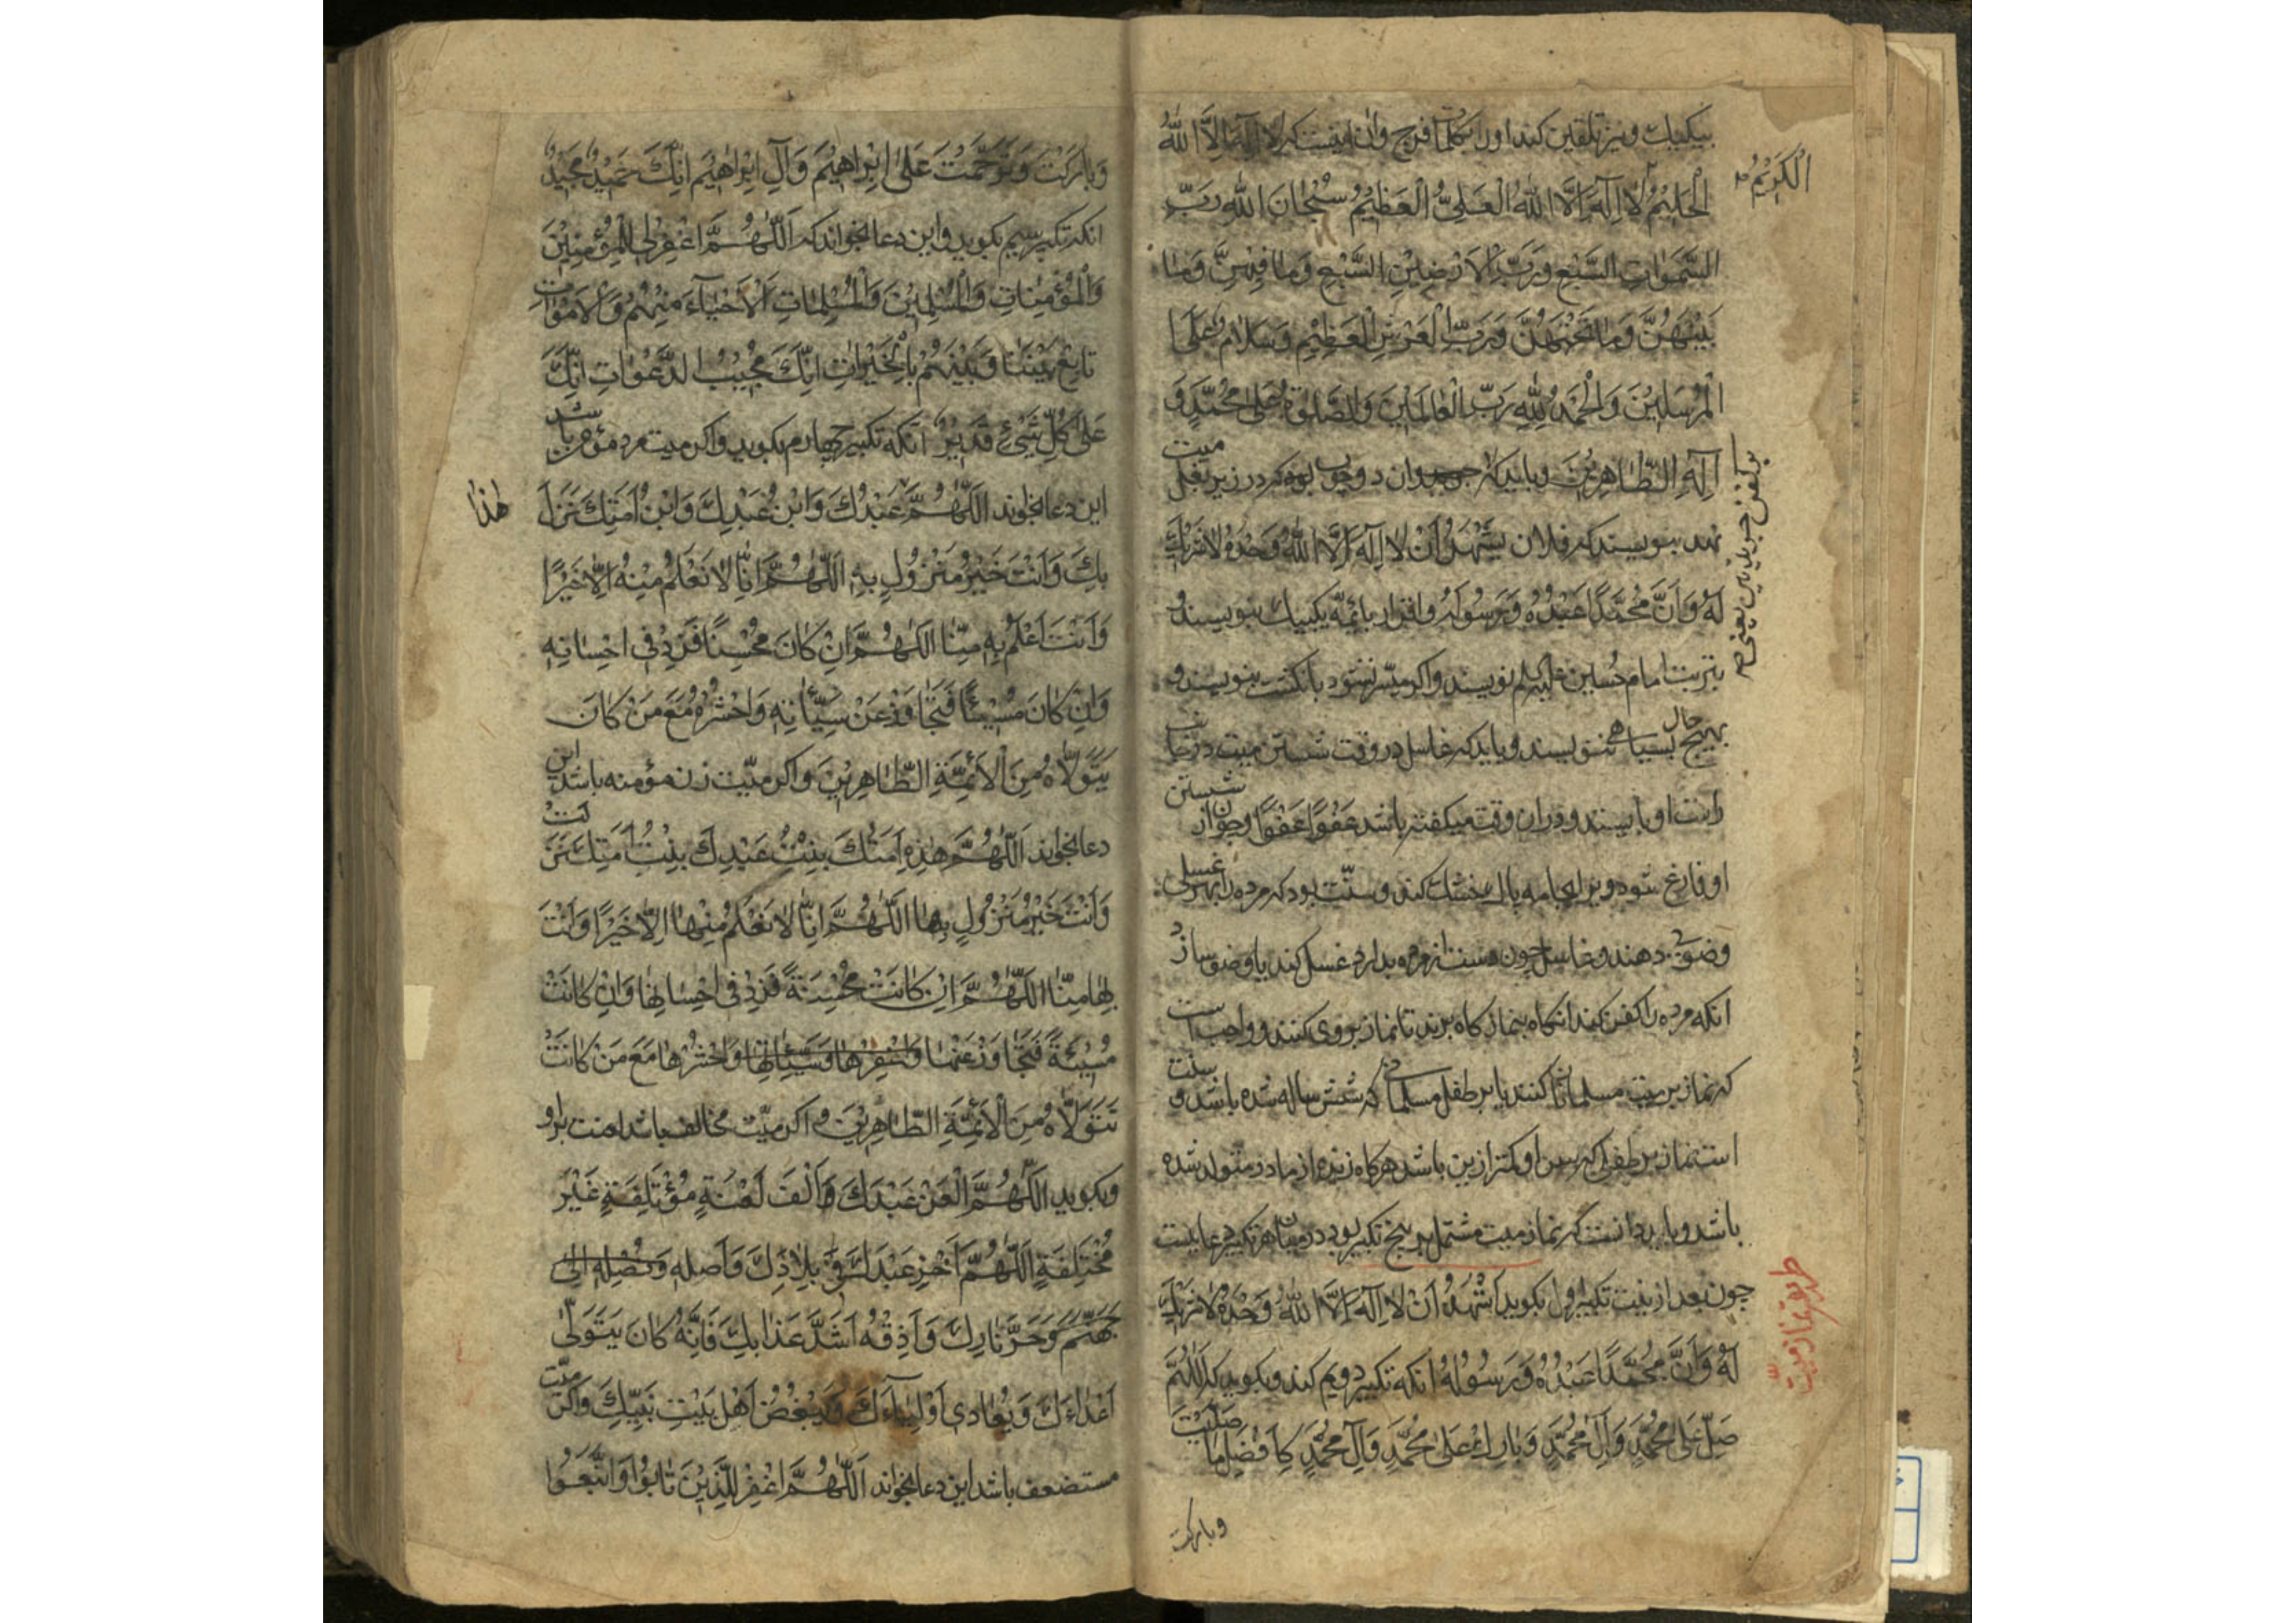 بیکبیک و نیز تلقین کند او را بکلمات فرج و ان اینست که لا اِلٰهَ اِلَّا اللهُ
الْکَرِیْمُ
الْحَلِیْمُ لَا اِلٰهَ اِلَّا اللهُ الْعَلِیُّ الْعَظِیْمُ سُبْحَانَ اللهِ رَبِّ
السَّمٰوَاتِ السَّبْعِ وَرَبِّ الْاَرْضِیْنَ السَّبْعِ وَمَا فِیْهِنَّ وَمَا
بَیْنَهُنَّ وَمَا تَحْتَهُنَّ وَرَبِّ الْعَرْشِ الْعَظِیْمِ وَسَلَامٌ عَلَی
الْمُرْسَلِیْنَ وَالْحَمْدُ لِلّٰهِ رَبِّ الْعَالَمِیْنَ وَالصَّلٰوةُ عَلٰی مُحَمَّدٍ وَ
اٰلِهِ الطَّاهِرِیْنَ و باید که دو چوب بود که در زیر بغل میت
بر کفن جریدتین یعنی
نهند بنویسند که فلان یَشْهَدُ اَنْ لَا اِلٰهَ اِلَّا اللهُ وَحْدَهُ لَا شَرِیْكَ
لَهُ وَاَنَّ مُحَمَّدًا عَبْدُهُ وَرَسُولُهُ و اقرار بائمّه یکبیك بنویسند و
بتربت امام حُسین علیه السلم نویسند و اکر میسّر نشود بانکشت بنویسند و
بهیچ حال بسیاهی ننویسند و باید که غاسل در وقت شستن میت در جانب
راست او بایستد و در ان وقت میکفته باشد عَفْوًا عَفْوًا و چون از شستن
او فارغ شود ویرا بجامه پاك خشك کند و سنّت بود که مرده را بهر غسلی
وضوئی دهند و غاسل چون دست از مرده بدارد غسل کند یا وضو سازد
انکه مرده را کفن کند انکاه بنماز کاه برند تا نماز بر وی کنند و واجب است
که نماز بر میت مسلمانان کنند یا بر طفل مسلمانی که شش ساله شده باشد و سنت
است نماز بر طفلی که سن او کمتر ازین باشد هرکاه زنده از مادر متولد شده
باشد و باید دانست که نماز میت مشتمل بر پنج تکبیر بود در میان هر تکبیر دعائیست
طریق نماز میّت
چون بعد از نیت تکبیر اول بکوید اَشْهَدُ اَنْ لَا اِلٰهَ اِلَّا اللهُ وَحْدَهُ لَا شَرِیْكَ
لَهُ وَاَنَّ مُحَمَّدًا عَبْدُهُ وَرَسُوْلُهُ انکه تکبیر دویم کند و بکوید که اَللّٰهُمَّ
صَلِّ عَلٰی مُحَمَّدٍ وَاٰلِ مُحَمَّدٍ وَبَارِكْ عَلٰی مُحَمَّدٍ وَاٰلِ مُحَمَّدٍ کَاَفْضَلِ مَا صَلَّیْتَ
و بارکت
وَبَارَکْتَ وَتَرَحَّمْتَ عَلٰی اِبْرَاهِیْمَ وَاٰلِ اِبْرَاهِیْمَ اِنَّكَ حَمِیْدٌ مَجِیْدٌ
انکه تکبیر سیم بکوید و این دعا بخواند که اَللّٰهُمَّ اغْفِرْ لِلْمُؤْمِنِیْنَ
وَالْمُؤْمِنَاتِ وَالْمُسْلِمِیْنَ وَالْمُسْلِمَاتِ اَلْاَحْیَاءَ مِنْهُمْ وَالْاَمْوَاتِ
تَابِعْ بَیْنَنَا وَبَیْنَهُمْ بِالْخَیْرَاتِ اِنَّكَ مُجِیْبُ الدَّعَوَاتِ اِنَّكَ
عَلٰی کُلِّ شَیْءٍ قَدِیْرٌ انکه تکبیر چهارم بکوید و اکر میت مرد مؤمن باشد
این دعا بخواند اَللّٰهُمَّ عَبْدُكَ وَابْنُ عَبْدِكَ وَابْنُ اَمَتِكَ نَزَلَ
هٰذا
بِكَ وَاَنْتَ خَیْرُ مَنْزُوْلٍ بِهِ اَللّٰهُمَّ اِنَّا لَا نَعْلَمُ مِنْهُ اِلَّا خَیْرًا
وَاَنْتَ اَعْلَمُ بِهِ مِنَّا اَللّٰهُمَّ اِنْ کَانَ مُحْسِنًا فَزِدْ فِی اِحْسَانِهِ
وَاِنْ کَانَ مُسِیْئًا فَتَجَاوَزْ عَنْ سَیِّئَاتِهِ وَاحْشُرْهُ مَعَ مَنْ کَانَ
یَتَوَلَّاهُ مِنَ الْاَئِمَّةِ الطَّاهِرِیْنَ و اکر میّت زن مؤمنه باشد این
دعا بخواند اَللّٰهُمَّ هٰذِهِ اَمَتُكَ بِنْتُ عَبْدِكَ بِنْتُ اَمَتِكَ نَزَلَتْ
وَاَنْتَ خَیْرُ مَنْزُوْلٍ بِهَا اَللّٰهُمَّ اِنَّا لَا نَعْلَمُ مِنْهَا اِلَّا خَیْرًا وَاَنْتَ
بِهَا مِنَّا اَللّٰهُمَّ اِنْ کَانَتْ مُحْسِنَةً فَزِدْ فِی اِحْسَانِهَا وَاِنْ کَانَتْ
مُسِیْئَةً فَتَجَاوَزْ عَنْهَا وَاغْفِرْهَا وَسَیِّئَاتِهَا وَاحْشُرْهَا مَعَ مَنْ کَانَتْ
تَتَوَلَّاهُ مِنَ الْاَئِمَّةِ الطَّاهِرِیْنَ و اکر میّت مخالف باشد لعنت بر او
و بکوید اَللّٰهُمَّ الْعَنْ عَبْدَكَ وَاَلْفَ لَعْنَةٍ مُؤْتَلِفَةٍ غَیْرَ
مُخْتَلِفَةٍ اَللّٰهُمَّ اَخْزِ عَبْدَكَ فِی بِلَادِكَ وَاَصْلِهِ
جَهَنَّمَ وَحَرَّ نَارِكَ وَاَذِقْهُ اَشَدَّ عَذَابِكَ فَاِنَّهُ کَانَ یَتَوَلّٰی
اَعْدَاءَكَ وَیُعَادِی اَوْلِیَاءَكَ وَیُبْغِضُ اَهْلَ بَیْتِ نَبِیِّكَ و اکر میّت
مستضعف باشد این دعا بخواند اَللّٰهُمَّ اغْفِرْ لِلَّذِیْنَ تَابُوْا وَاتَّبَعُوْا